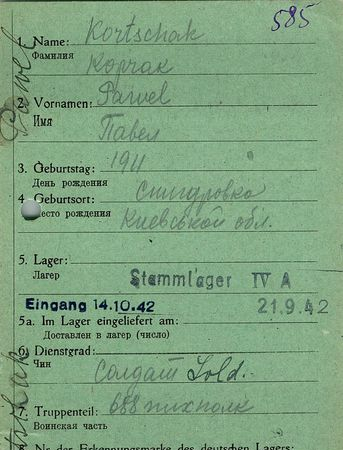 585
1. Name: Kortschak
Фамилия Корчак
2. Vornamen: Pawel
Имя Павел
3. Geburtstag: 1911
День рождения
4. Geburtsort:
место рождения Киевськой обл.
5. Lager:
Лагер Stammlager IV A
Eingang 14.10.42 21.9.42
5a. Im Lager eingeliefert am:
Доставлен в лагер (число)
6. Dienstgrad:
Чин Солдат Sold.
7. Truppenteil: 688 пихполк
Воинская часть
Nr. der Erkennungsmarke des deutschen Lagers:
Pawel